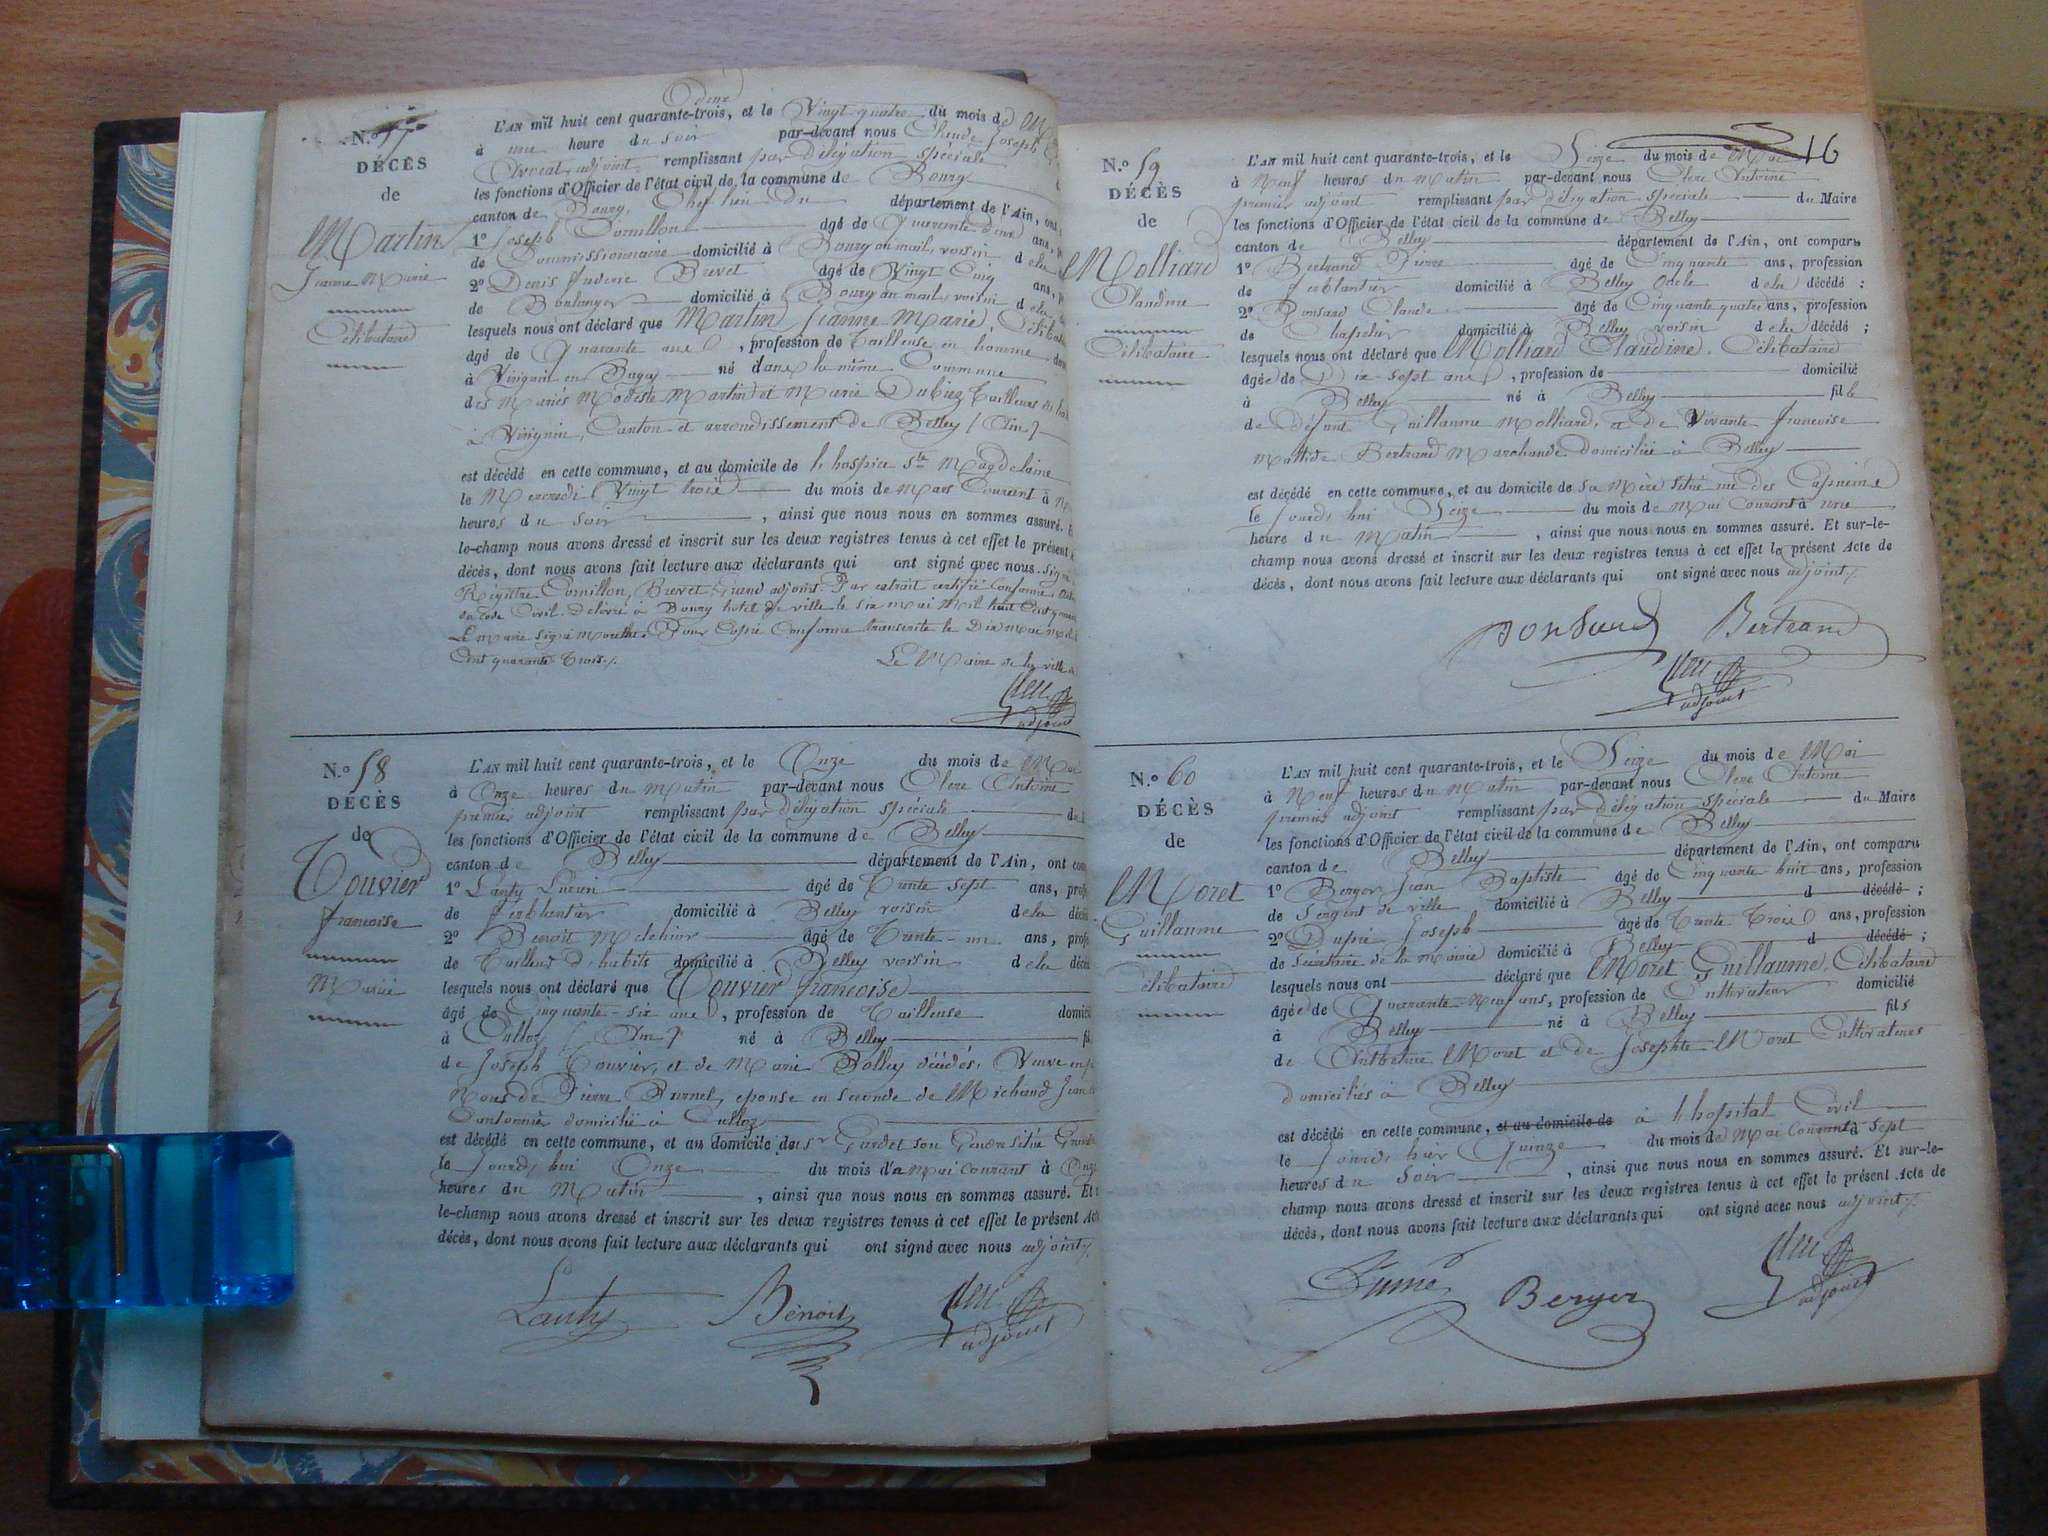 N.º 57
DÉCÈS
de
Martin
Jeanne Marie
Célibataire
L'AN mil huit cent quarante-trois, et le Vingt quatre du mois de
à une heure du soir par-devant nous Claude Joseph
Avocat, adjoint remplissant par délégation spéciale
les fonctions d'Officier de l'état civil de la commune de Bourg
canton de Bourg, Chef lieu du département de l'Ain, ont
1º Joseph Cornillon âgé de Quarante deux ans,
de Commissionnaire domicilié à Bourg au mail, voisin d ela
2º Denis Brevet âgé de Vingt Cinq ans,
de Boulanger domicilié à Bourg au mail, voisin d ela
lesquels nous ont déclaré que Martin Jeanne Marie,
âgé de Quarante ans, profession de tailleuse en homme
à Virignin en Bugey né dans la même Commune
des Mariés Modeste Martin et Marie Dubiez Tailleurs
à Virignin, Canton et arrondissement de Belley (Ain)
est décédé en cette commune, et au domicile de l'hospice Ste Magdelaine
le Mercredi Vingt trois du mois de Mars Courant à
heures du soir, ainsi que nous nous en sommes assuré.
le-champ nous avons dressé et inscrit sur les deux registres tenus à cet effet le présent
décès, dont nous avons fait lecture aux déclarants qui ont signé avec nous.
Régistre Cornillon, Brevet, Grand adjoint. Par extrait certifié Conforme,
du Code Civil. Délivré à Bourg hotel de ville le six mai Mil huit Cent
Le Maire signé Pour Copie Conforme transcrite le Dix Mai
Cent quarante Trois./.
Le Maire de la ville
adjoint
N.º 58
DÉCÈS
de
Touvier
françoise
Mariée
L'AN mil huit cent quarante-trois, et le Onze du mois de Mai
à Onze heures du Matin par-devant nous Clerc Antoine
premier adjoint remplissant par délégation spéciale
les fonctions d'Officier de l'état civil de la commune de Belley
canton de Belley département de l'Ain, ont
1º Lanty âgé de Trente sept ans,
de ferblantier domicilié à Belley voisin dela
2º Benoit Melchior âgé de Trente-un ans,
de Tailleur d'habits domicilié à Belley voisin d ela
lesquels nous ont déclaré que Touvier françoise
âgé de Cinquante-six ans, profession de Tailleuse
à Culloz (Ain) né à Belley
de Joseph Touvier, et de Marie Bolley décédés, Veuve en
Noces de Pierre Brunel, épouse en seconde de Michaud Jean
Cantonnier domicilié à Culloz
est décédé en cette commune, et au domicile de sr Gurdet son Gendre située
le Jourd'hui Onze du mois d'a Mai courant à Onze
heures du Matin, ainsi que nous nous en sommes assuré.
le-champ nous avons dressé et inscrit sur les deux registres tenus à cet effet le présent
décès, dont nous avons fait lecture aux déclarants qui ont signé avec nous adjoint/.
Lanty Bénoit
adjoint
16
N.º 59
DÉCÈS
de
Molliard
Claudine
Célibataire
L'AN mil huit cent quarante-trois, et le Seize du mois de Mai
à Neuf heures du Matin par-devant nous Clerc Antoine
premier adjoint remplissant par délégation spéciale du Maire
les fonctions d'Officier de l'état civil de la commune de Belley
canton de Belley département de l'Ain, ont comparu
1º Bertrand Pierre âgé de Cinquante ans, profession
de ferblantier domicilié à Belley oncle d ela décédé ;
2º Ponsard Claude âgé de Cinquante quatre ans, profession
de Chapelier domicilié à Belley voisin d ela décédé ;
lesquels nous ont déclaré que Molliard Claudine, Célibataire
âgée de Dix-sept ans, profession de domicilié
à Belley né à Belley fille
de Défunt Guillaume Molliard, et de Vivante françoise
Matilde Bertrand Marchande domiciliée à Belley
est décédé en cette commune, et au domicile de sa Mère située rue des Capucins
le Jourd'hui Seize du mois de Mai Courant à une
heure du Matin, ainsi que nous nous en sommes assuré. Et sur-le-
champ nous avons dressé et inscrit sur les deux registres tenus à cet effet le présent Acte de
décès, dont nous avons fait lecture aux déclarants qui ont signé avec nous adjoint/.
Ponsard Bertrand
adjoint
N.º 60
DÉCÈS
de
Moret
Guillaume
Célibataire
L'AN mil huit cent quarante-trois, et le Seize du mois de Mai
à Neuf heures du Matin par-devant nous Clerc Antoine
premier adjoint remplissant par délégation spéciale du Maire
les fonctions d'Officier de l'état civil de la commune de Belley
canton de Belley département de l'Ain, ont comparu
1º Berger Jean Baptiste âgé de Cinquante huit ans, profession
de Sergent de ville domicilié à Belley d décédé ;
2º Dupré Joseph âgé de Trente Trois ans, profession
de Sécrétaire de la Mairie domicilié à Belley d décédé ;
lesquels nous ont déclaré que Moret Guillaume, Célibataire
âgé de Quarante-Neuf ans, profession de Cultivateur domicilié
à Belley né à Belley fils
de Anthelme Moret et de Josephte Moret Cultivateurs
domiciliés à Belley
est décédé en cette commune, et au domicile de à l'hopital Civil
le Jourd'hier Quinze du mois de Mai Courant à Sept
heures du Soir, ainsi que nous nous en sommes assuré. Et sur-le-
champ nous avons dressé et inscrit sur les deux registres tenus à cet effet le présent Acte de
décès, dont nous avons fait lecture aux déclarants qui ont signé avec nous adjoint/.
Berger
adjoint